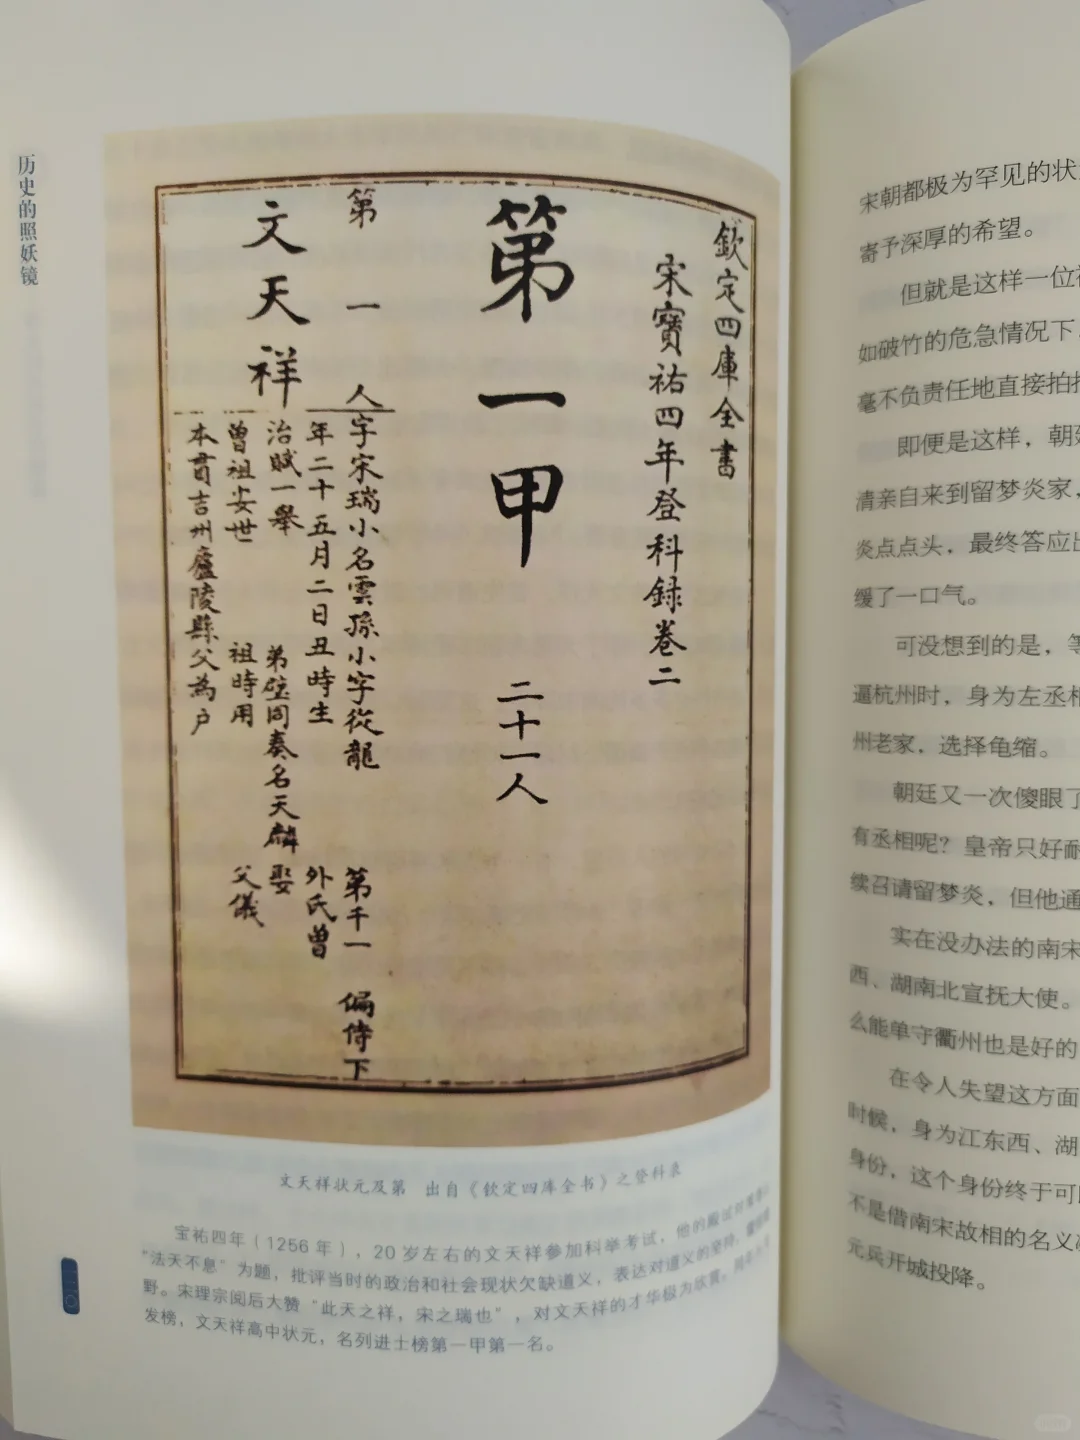 历史的照妖镜
欽定四庫全書
宋寳祐四年登科録卷二
第一甲 二十一人
第一人
字宋瑞小名雲孫小字從龍 第千一 偏侍下
年二十五月二日丑時生 外氏曾
治賦一舉 弟璧同奏名天麟 娶
曾祖安世 祖時用 父儀
本貫吉州廬陵縣父為户
文天祥
文天祥状元及第 出自《钦定四库全书》之登科录
宝祐四年（1256年），20岁左右的文天祥参加科举考试，他的殿试对策
“法天不息”为题，批评当时的政治和社会现状欠缺道义，表达对道义的坚持，
野。宋理宗阅后大赞“此天之祥，宋之瑞也”，对文天祥的才华极为欣赏，
发榜，文天祥高中状元，名列进士榜第一甲第一名。
一一〇
宋朝都极为罕见的状
寄予深厚的希望。
但就是这样一位
如破竹的危急情况下
毫不负责任地直接拍
即便是这样，朝
清亲自来到留梦炎家，
炎点点头，最终答应
缓了一口气。
可没想到的是，等
逼杭州时，身为左丞相
州老家，选择龟缩。
朝廷又一次傻眼了
有丞相呢？皇帝只好耐
续召请留梦炎，但他通
实在没办法的南宋
西、湖南北宣抚大使。
么能单守衢州也是好的
在令人失望这方面
时候，身为江东西、湖
身份，这个身份终于可
不是借南宋故相的名义
元兵开城投降。